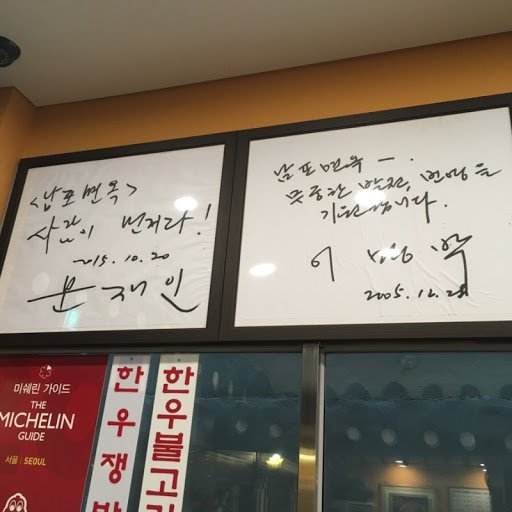 <남포면옥>
사람이 먼저다!
2015.10.20
문재인
남포면옥 一.
무궁한 발전, 번영을
기원합니다.
이명박
2005.12.28
미쉐린 가이드
THE
MICHELIN
GUIDE
서울 SEOUL
한우쟁반
한우불고기